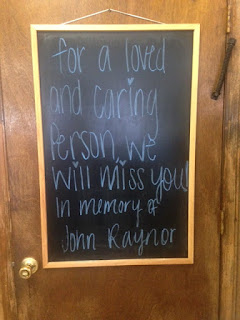 for a loved
and caring
Person we
will miss you!
In memory of
John Raynor